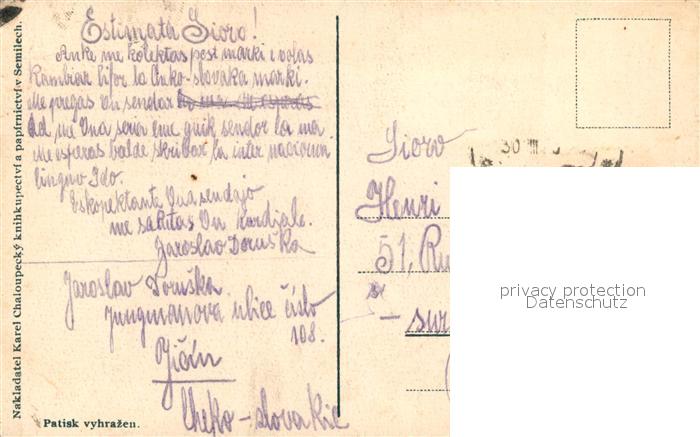 Nakladatel Karel Chaloupecký knihkupectví a papírnictví v Semilech.
Estimata Sioro!
Anke me kolektas post marki e volas
kambiar li for la Cheko-slovaka marki.
Me pregas Vu sendar
ad me Vua serio e me quik sendor la mea.
me esperas balde skribar la inter naciona
linguo Ido.
Exkonektante Vua sendajo
me salutas Vu kordiale.
Jaroslav Doruška
Jaroslav Doruška.
Jungmanova ulice číslo
108.
Jičín
Cheko-slovakie
Patisk vyhražen.
30 III
Sioro
Henri
51, Ru
- sur
privacy protection
Datenschutz